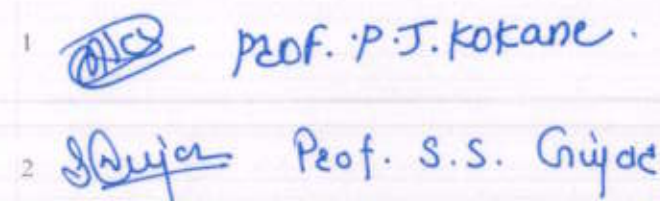 1 Prof. P.J. Kokane.
2 Prof. S.S. Gujar